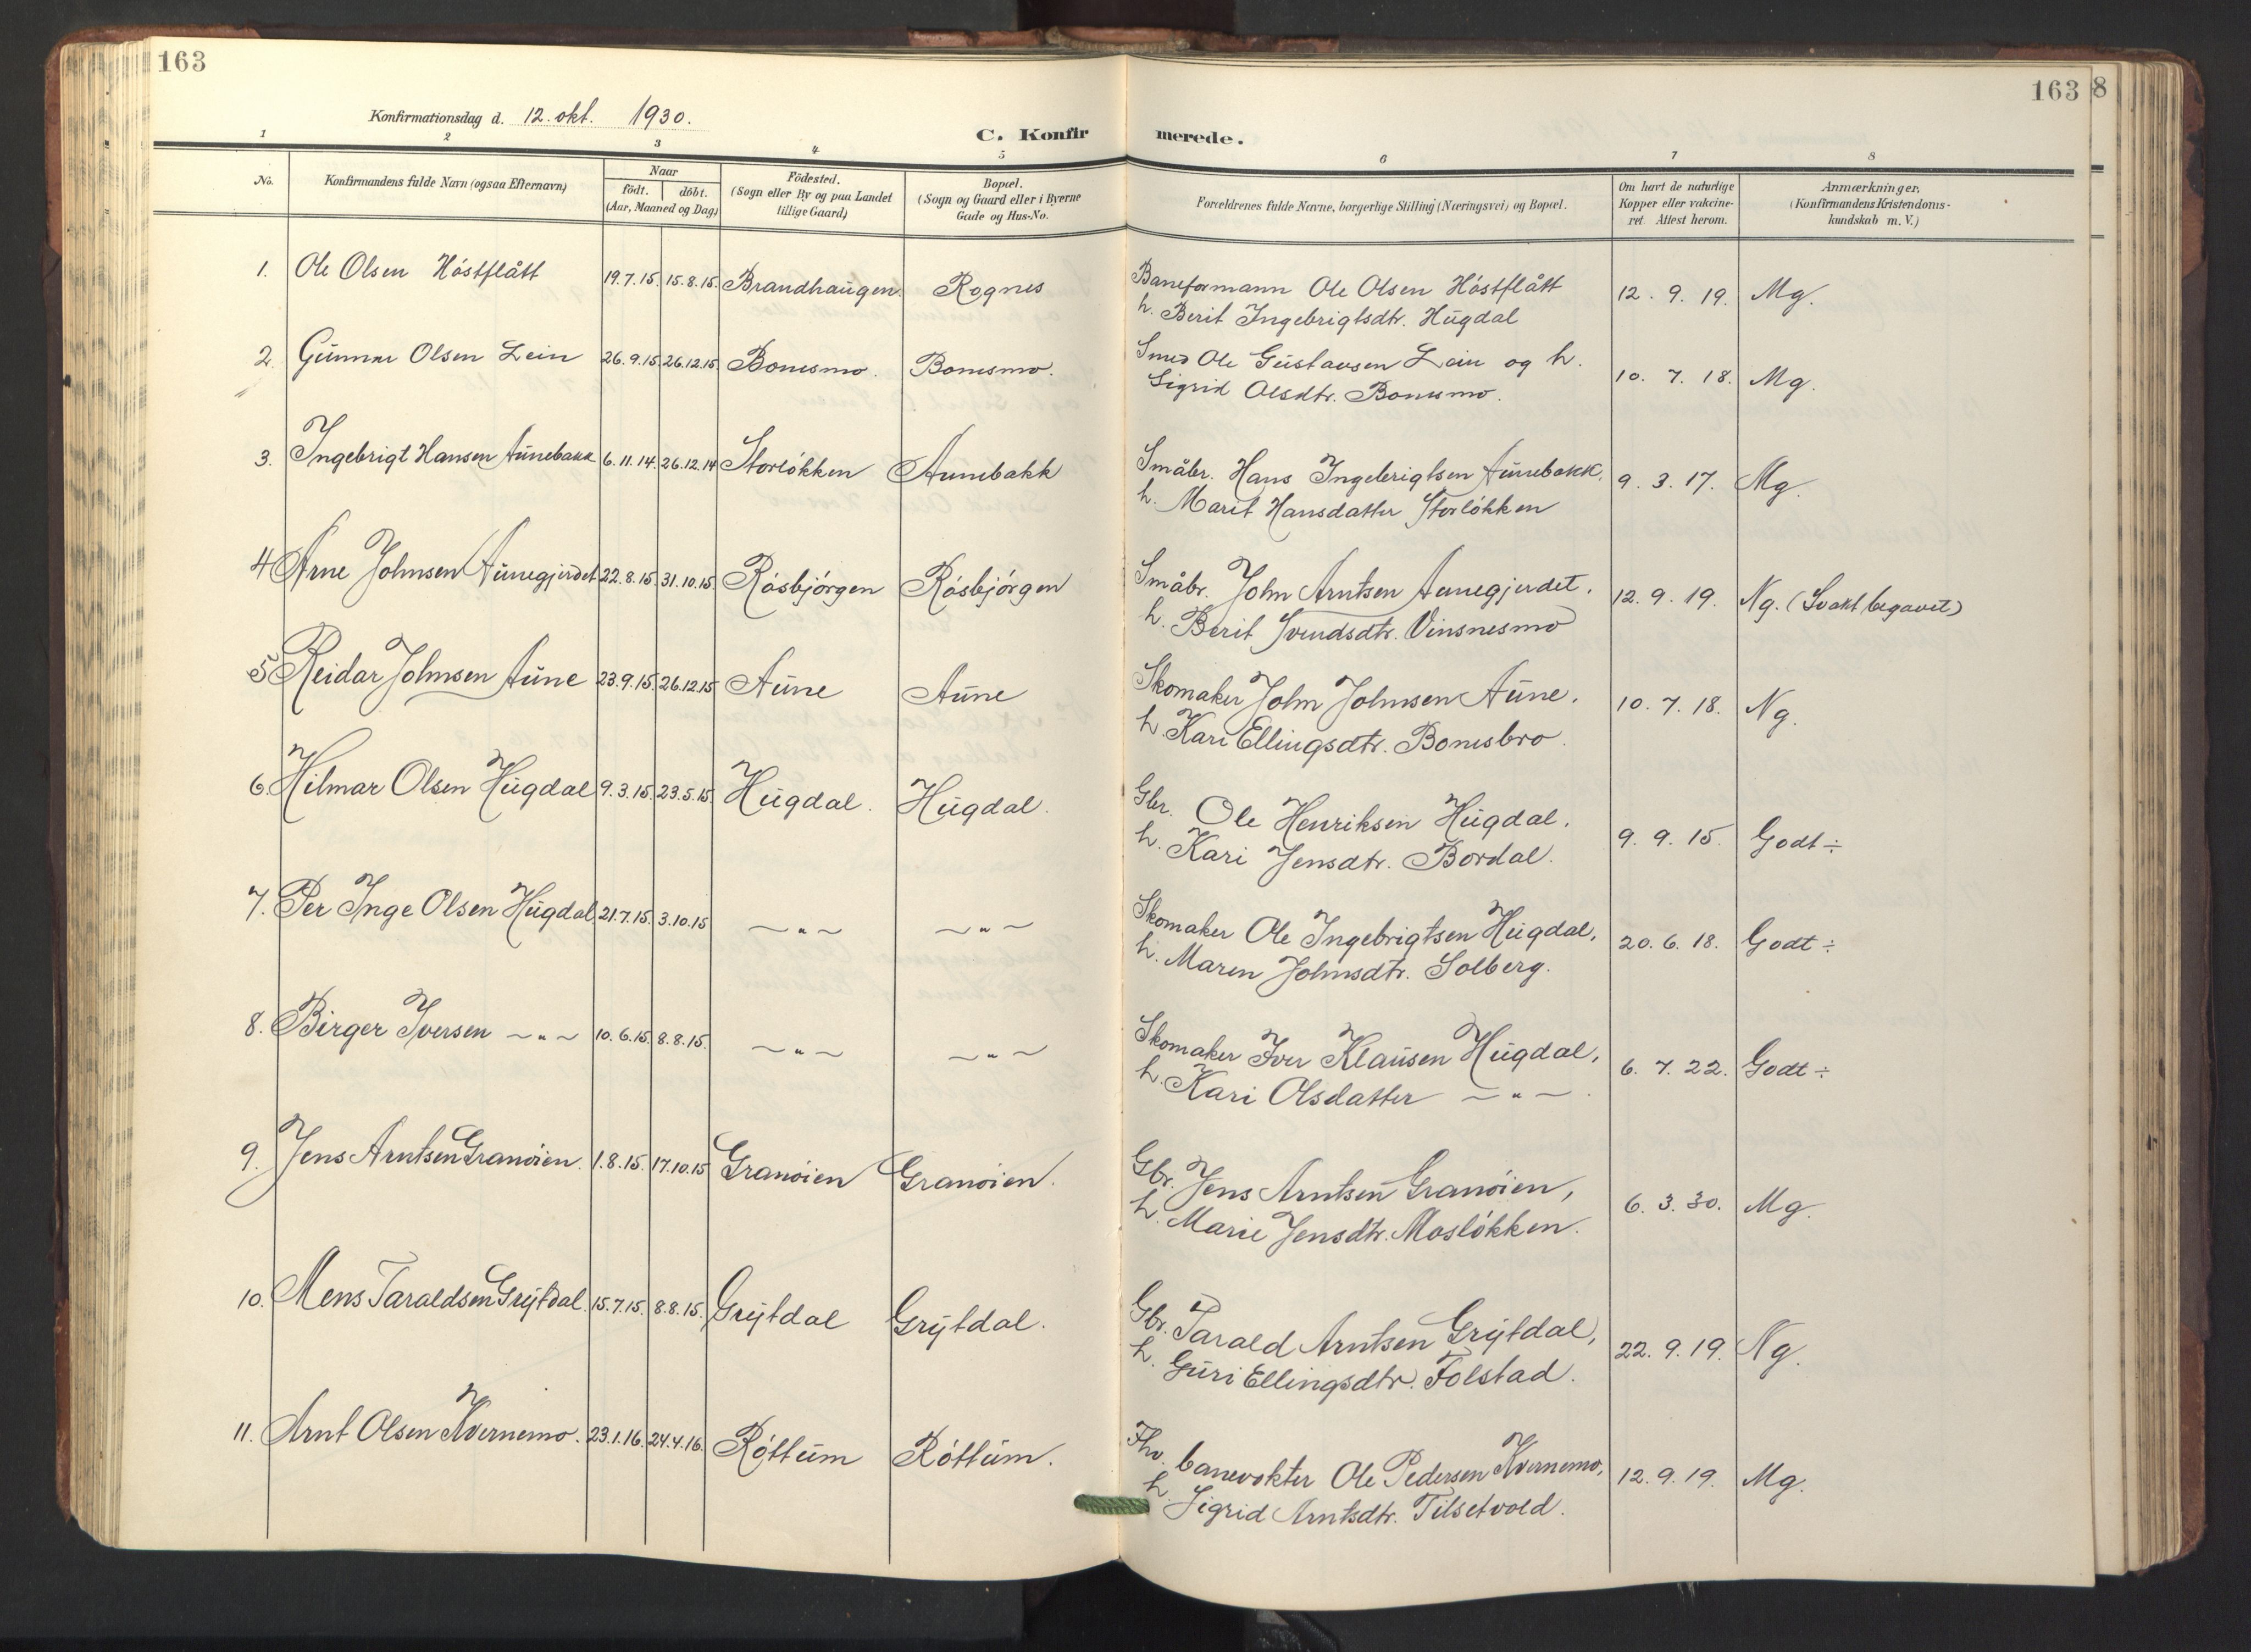 163
163
8
Konfirmationsdag d. 12. okt. 1930.
C. Konfirmerede.
1 2 3 4 5 6 7 8
No.
Konfirmandens fulde Navn (ogsaa Efternavn)
Naar
födt. döbt.
(Aar, Maaned og Dag)
Födested.
(Sogn eller By og paa Landet
tillige Gaard)
Bopæl.
(Sogn og Gaard eller i Byerne
Gade og Hus-No.
Forældrenes fulde Navne, borgerlige Stilling (Næringsvei) og Bopæl.
Om havt de naturlige
Kopper eller vakcine-
ret. Attest herom.
Anmærkninger.
(Konfirmandens Kristendoms-
kundskab m. V.)
1. Ole Olsen Höstflått 19.7.15. 15.8.15. Brandhaugen. Rognes Baneformann Ole Olsen Höstflått 12. 9. 19. Mg.
h. Berit Ingebrigtsdtr. Hugdal
2. Gunnar Olsen Lein 26.9.15 26.12.15. Bonesmo. Bonesmo. Smed Ole Gustavsen Lein og h. 10. 7. 18. Mg.
Sigrid Olsdtr. Bonesmo.
3. Ingebrigt Hansen Aunebakk 6.11.14. 26.12.14 Storlökken Aunebakk Småbr. Hans Ingebrigtsen Aunebakk, 9. 3. 17. Mg.
h. Marit Hansdatter Storlökken
4 Arne Johnsen Aunegjerdet 22.8.15. 31.10.15. Rösbjörgen Rösbjörgen Småbr. John Arntsen Aunegjerdet, 12. 9. 19. Ng. (Svakt begavet)
h. Berit Svendsdtr. Vinsnesmo
5 Reidar Johnsen Aune 23.9.15. 26.12.15 Aune Aune Skomaker John Johnsen Aune. 10. 7. 18. Ng.
h. Kari Ellingsdtr. Bonesbro.
6. Hilmar Olsen Hugdal 9.3.15. 23.5.15. Hugdal. Hugdal. Gbr. Ole Henriksen Hugdal. 9. 9. 15. Godt ÷
h. Kari Jensdtr. Bordal.
7. Per Inge Olsen Hugdal 21.7.15. 3.10.15 — " — — " — Skomaker Ole Ingebrigtsen Hugdal, 20. 6. 18. Godt ÷
h. Maren Johnsdtr. Solberg.
8. Birger Iversen — " — 10.6.15. 8.8.15. — " — — " — Skomaker Iver Klausen Hugdal, 6. 7. 22. Godt ÷
h. Kari Olsdatter — " — .
9. Jens Arntsen Granöien. 1.8.15. 17.10.15 Granöien Granöien. Gbr. Jens Arntsen Granöien, 6. 3. 30. Mg.
h. Marie Jensdtr. Moslökken.
10. Mens Taraldsen Grytdal. 15.7.15. 8.8.15. Grytdal Grytdal. Gbr. Tarald Arntsen Grytdal, 22. 9. 19. Ng.
h. Guri Ellingsdtr. Folstad.
11. Arnt Olsen Kvernemo. 23.1.16. 24.4.16. Röttum Röttum. Fhv. banevokter Ole Pedersen Kvernemo, 12. 9. 19. Mg.
h. Sigrid Arntsdtr. Tilsetvold.